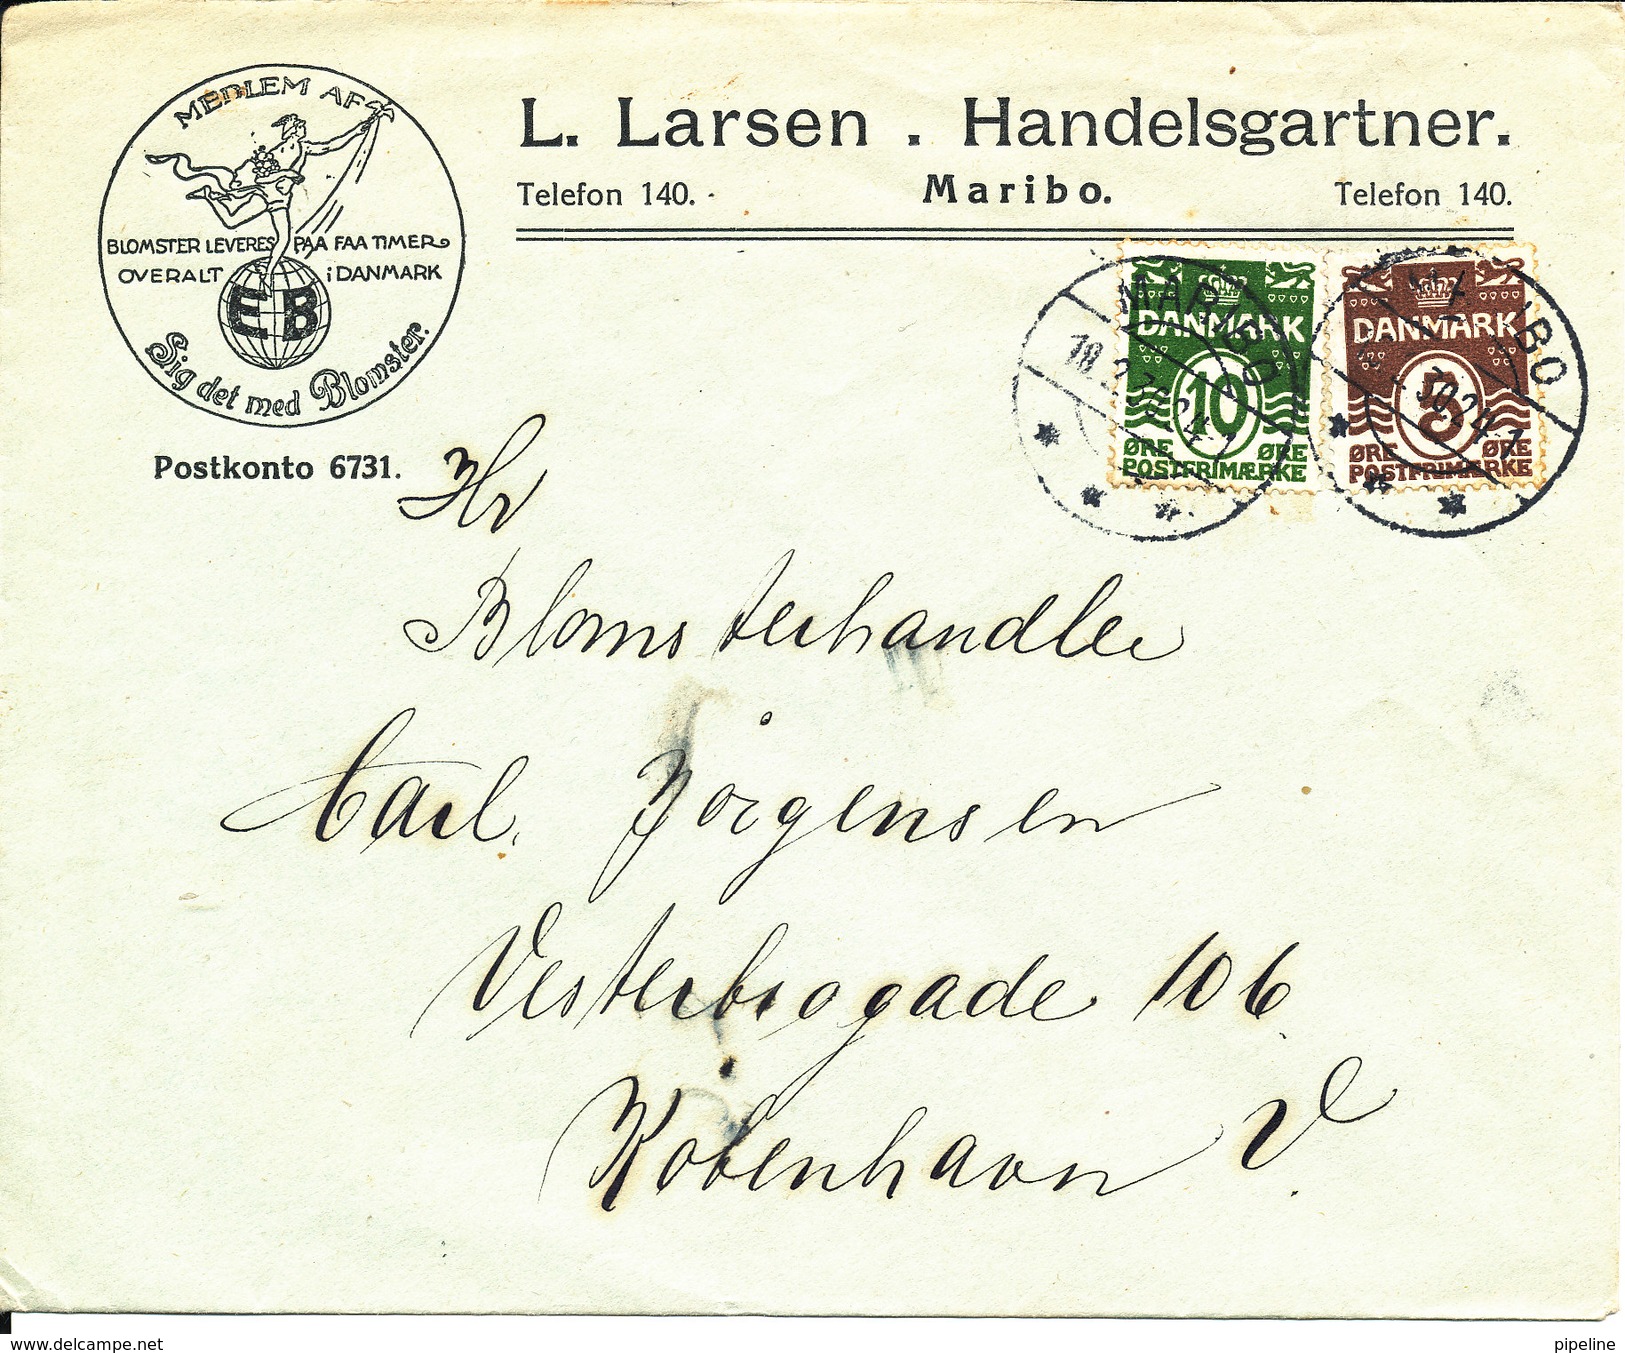 MEDLEM AF
BLOMSTER LEVERES PAA FAA TIMER
OVERALT i DANMARK
EB
Sig det med Blomster.
Postkonto 6731.
L. Larsen . Handelsgartner.
Telefon 140. Maribo. Telefon 140.
DANMARK
10
ØRE ØRE
POSTFRIMÆRKE
DANMARK
5
ØRE ØRE
POSTFRIMÆRKE
MARIBO
18.2.30.24-1
BO
30.24-1
Hr
Blomsterhandler
Carl Jörgensen
Vesterbrogade 106
København V.
www.delcampe.net
pipeline